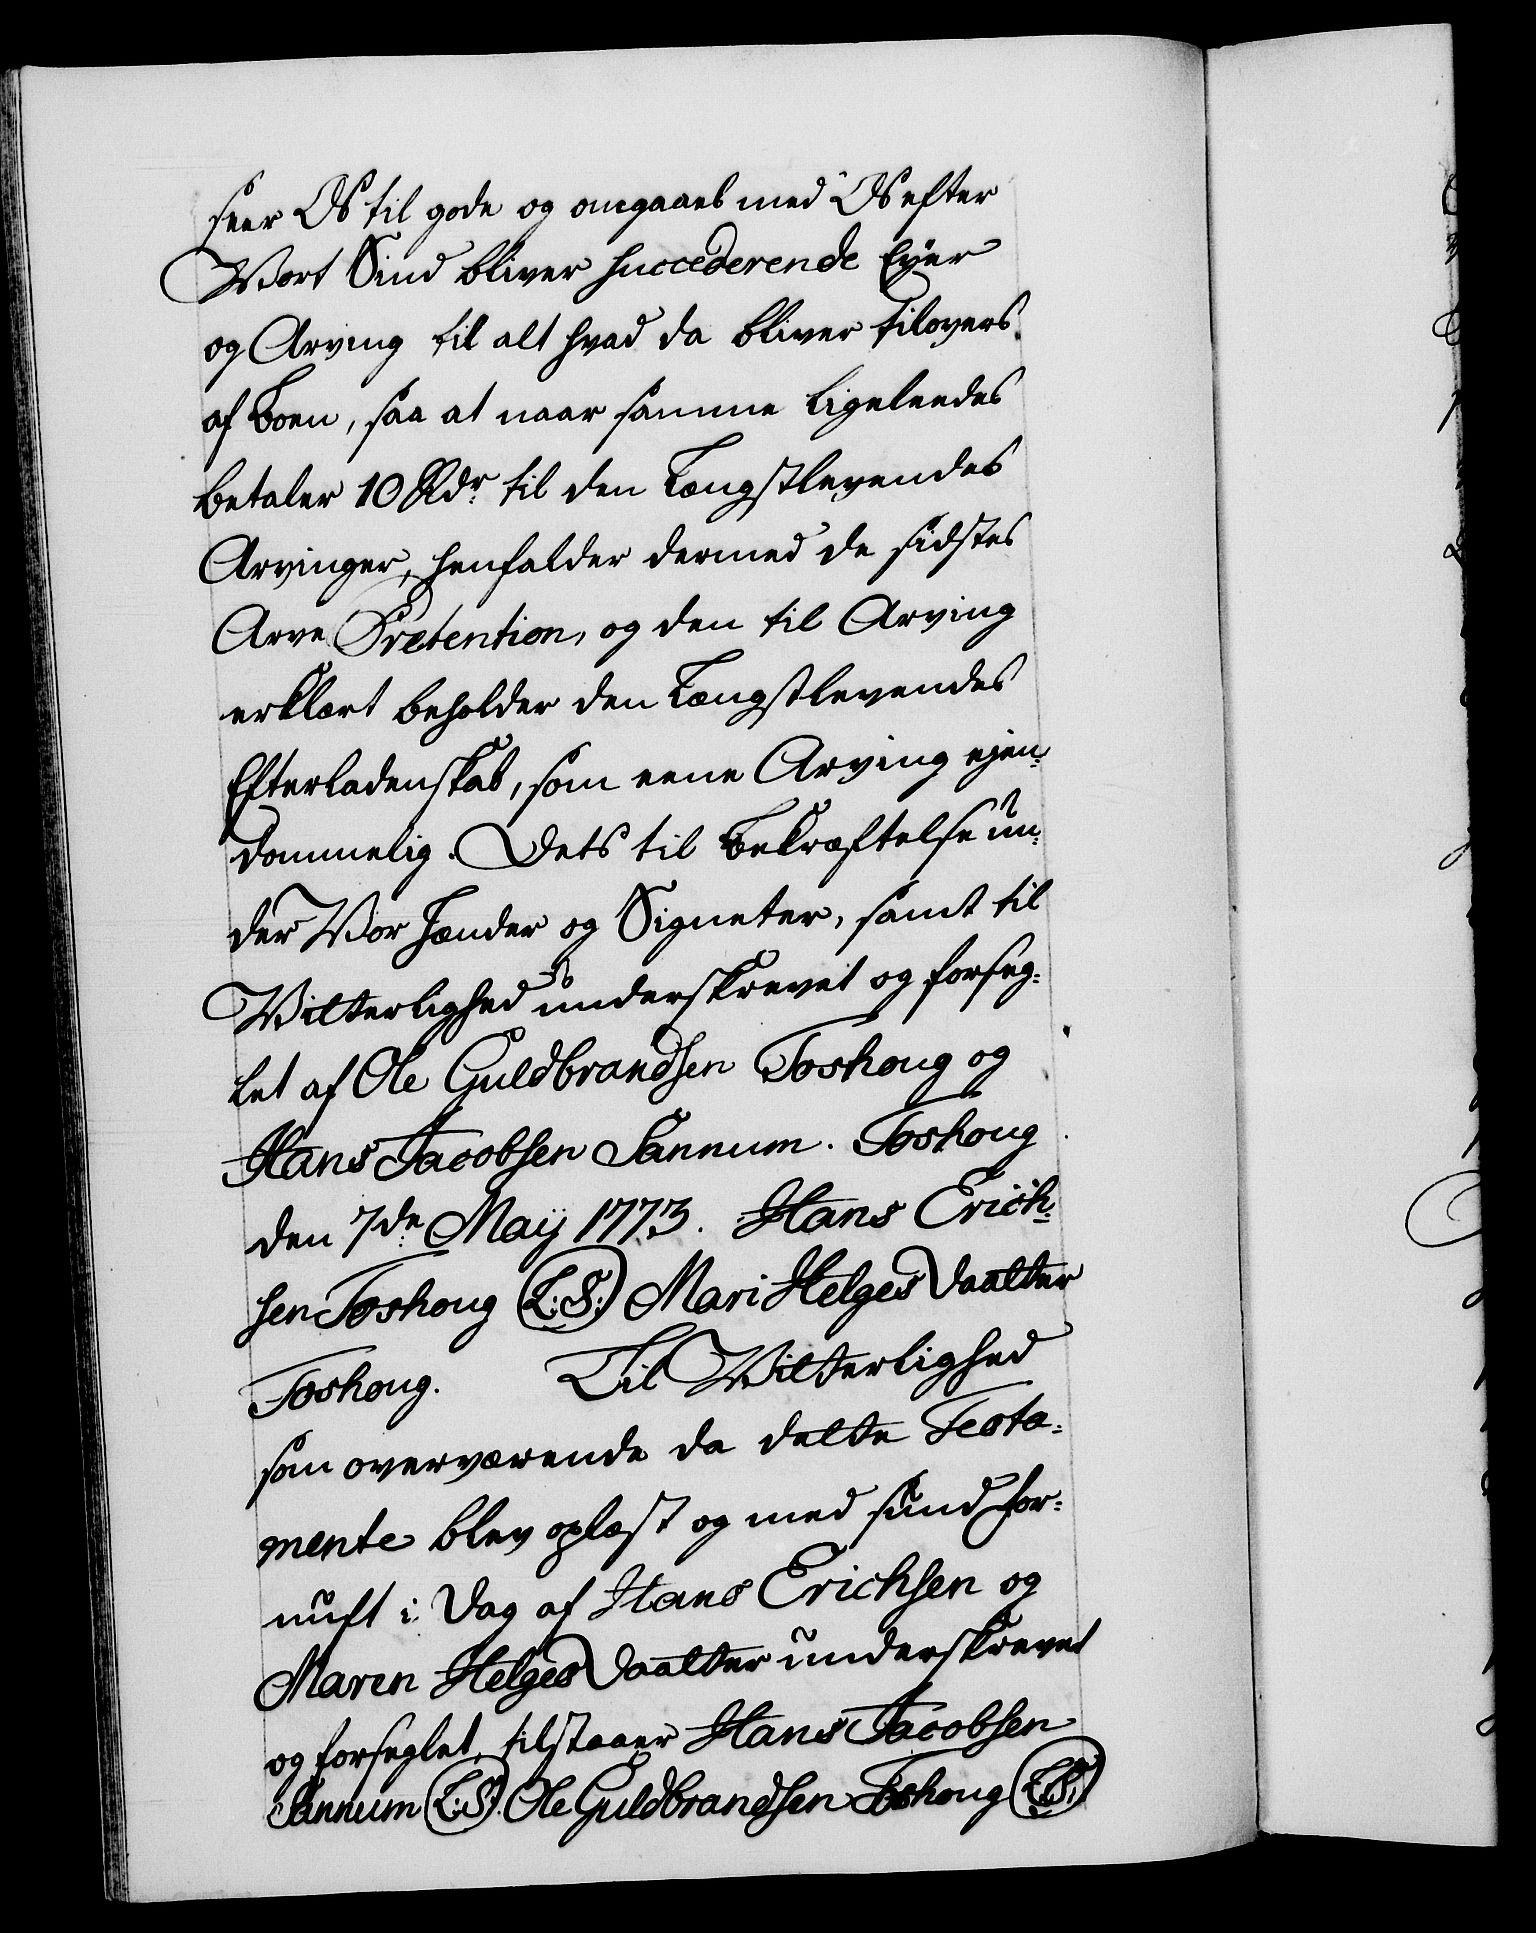 seer Os til gode og omgaaes med Os efter
Vort Sind bliver succederende Eyer
og Arving til alt hvad da bliver tilovers
af Boen, saa at naar samme ligeleedes
betaler 10 Rdr. til den Længstlevendes
Arvinger, henfalder dermed de sidstes
Arve Prætention, og den til Arving
erklært beholder den Længstlevendes
Efterladenskab, som eene Arving ejen-
dommelig. Dets til Bekræftelse un-
der Vor Hænder og Signeter, samt til
Vitterlighed underskrevet og forseg-
let af Ole Guldbrandsen Toshoug og
Hans Jacobsen Sannum. Toshoug
den 7de May 1773. Hans Erich-
sen Toshoug (L:S:) Mari Helges Daatter
Toshoug. Til Vitterlighed
som overværende da dette Testa-
mente blev oplæst og med sund For-
nuft i Dag af Hans Erichsen og
Maren Helges Daatter underskrevet
og forseglet, tilstaaer Hans Jacobsen
Sannum (L:S:) Ole Guldbrandsen Toshoug (L:S:)